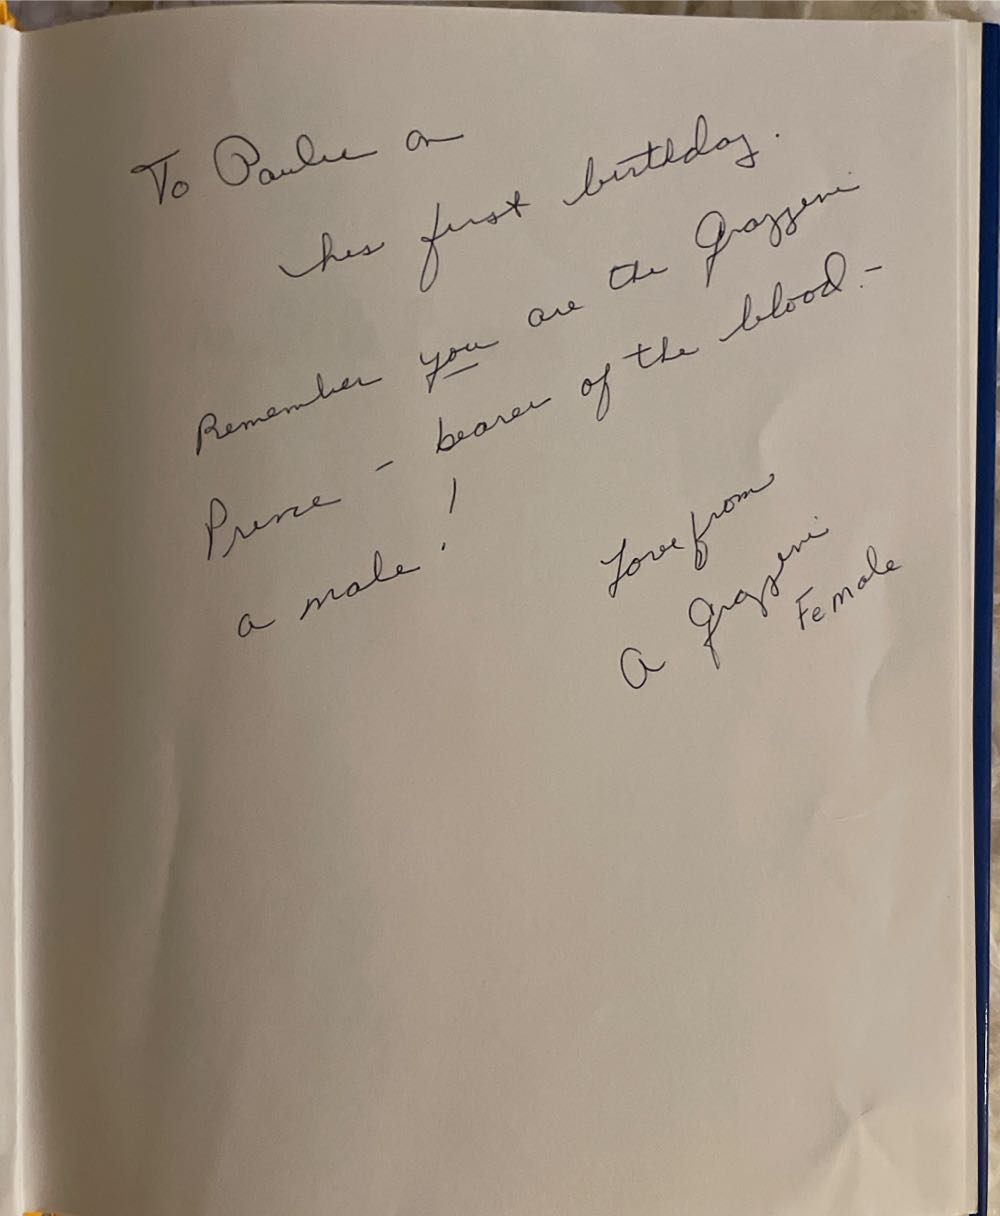 To Paulie on
his first birthday.
Remember you are the Grazzini
Prince - bearer of the blood. -
a male!
Love from
A Grazzini
Female